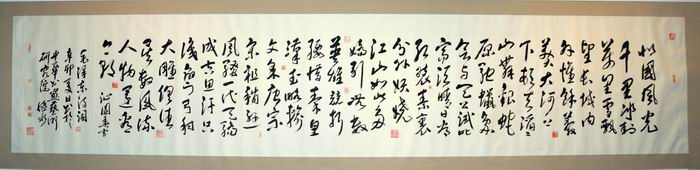 北國風光
千里冰封
萬里雪飄
望長城內
外惟餘莽
莽大河上
下頓失滔滔
山舞銀蛇
原馳蠟象欲
與天公試比
高須晴日看
紅裝素裹
分外妖嬈
江山如此多
嬌引無數
英雄競折
腰惜秦皇
漢武略輸
文采唐宗
宋祖稍遜
風騷一代天驕
成吉思汗只
識彎弓射
大雕俱往
矣數風流
人物還看
今朝 沁園春雪
毛澤東詩詞
辛卯夏日於
中華書畫藝術
研究院